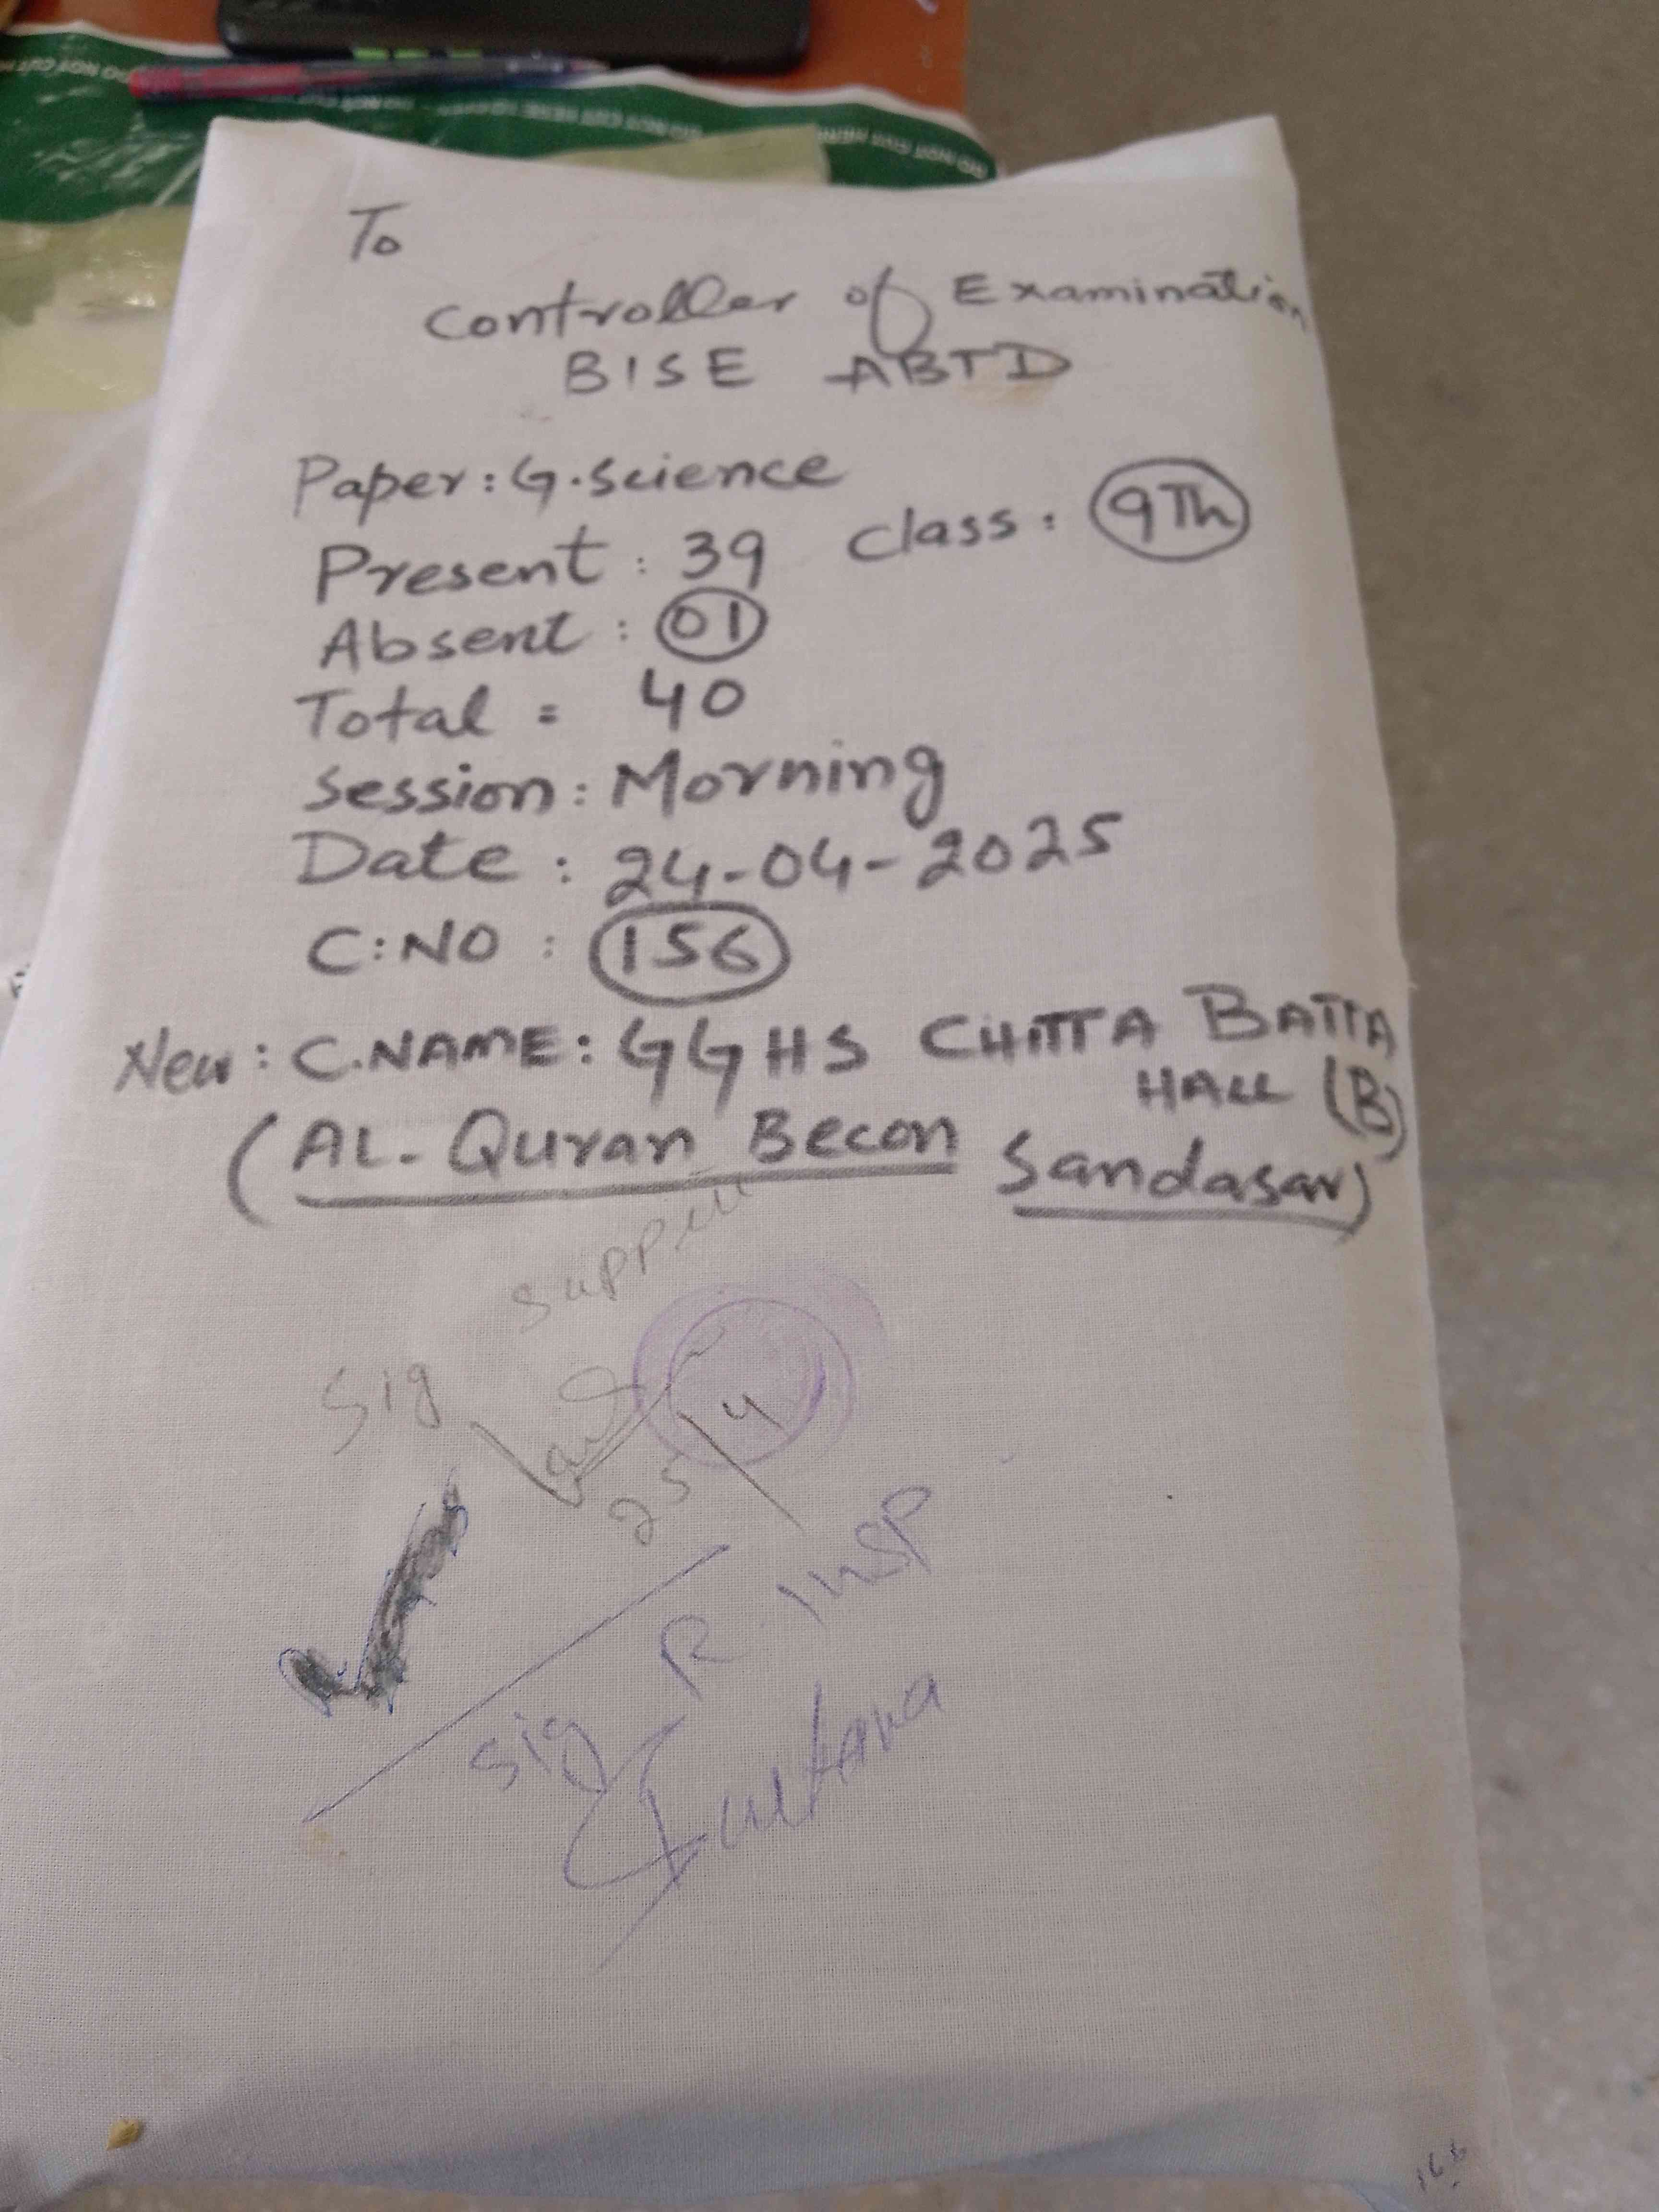 To
Controller of Examination
BISE ABTD
Paper: G.Science
Class: 9Th
Present: 39
Absent: 01
Total = 40
Session: Morning
Date: 24-04-2025
C:NO: 156
New: C.NAME: GGHS CHITTA BATTA
HALL (B)
(AL-Quran Becon Sandasar)
Sig
25/4
Sig R. Insp
Sultana